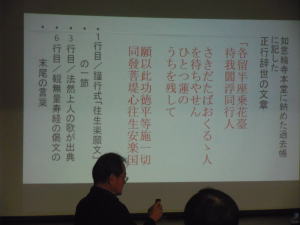 如意輪寺本堂に納めた過去帳
に記した
正行辞世の文章
「各留半座乗花臺
待我閻浮同行人
さきだたばおくるゝ人
を待ちやせん
ひとつ蓮の
うちを残して
願以此功徳平等施一切
同發菩堤心往生安楽国
・1行目/鐘行式「往生楽願文」
の一節
・3行目/法然上人の歌が出典
・6行目/観無量寿経の偈文の
末尾の言葉